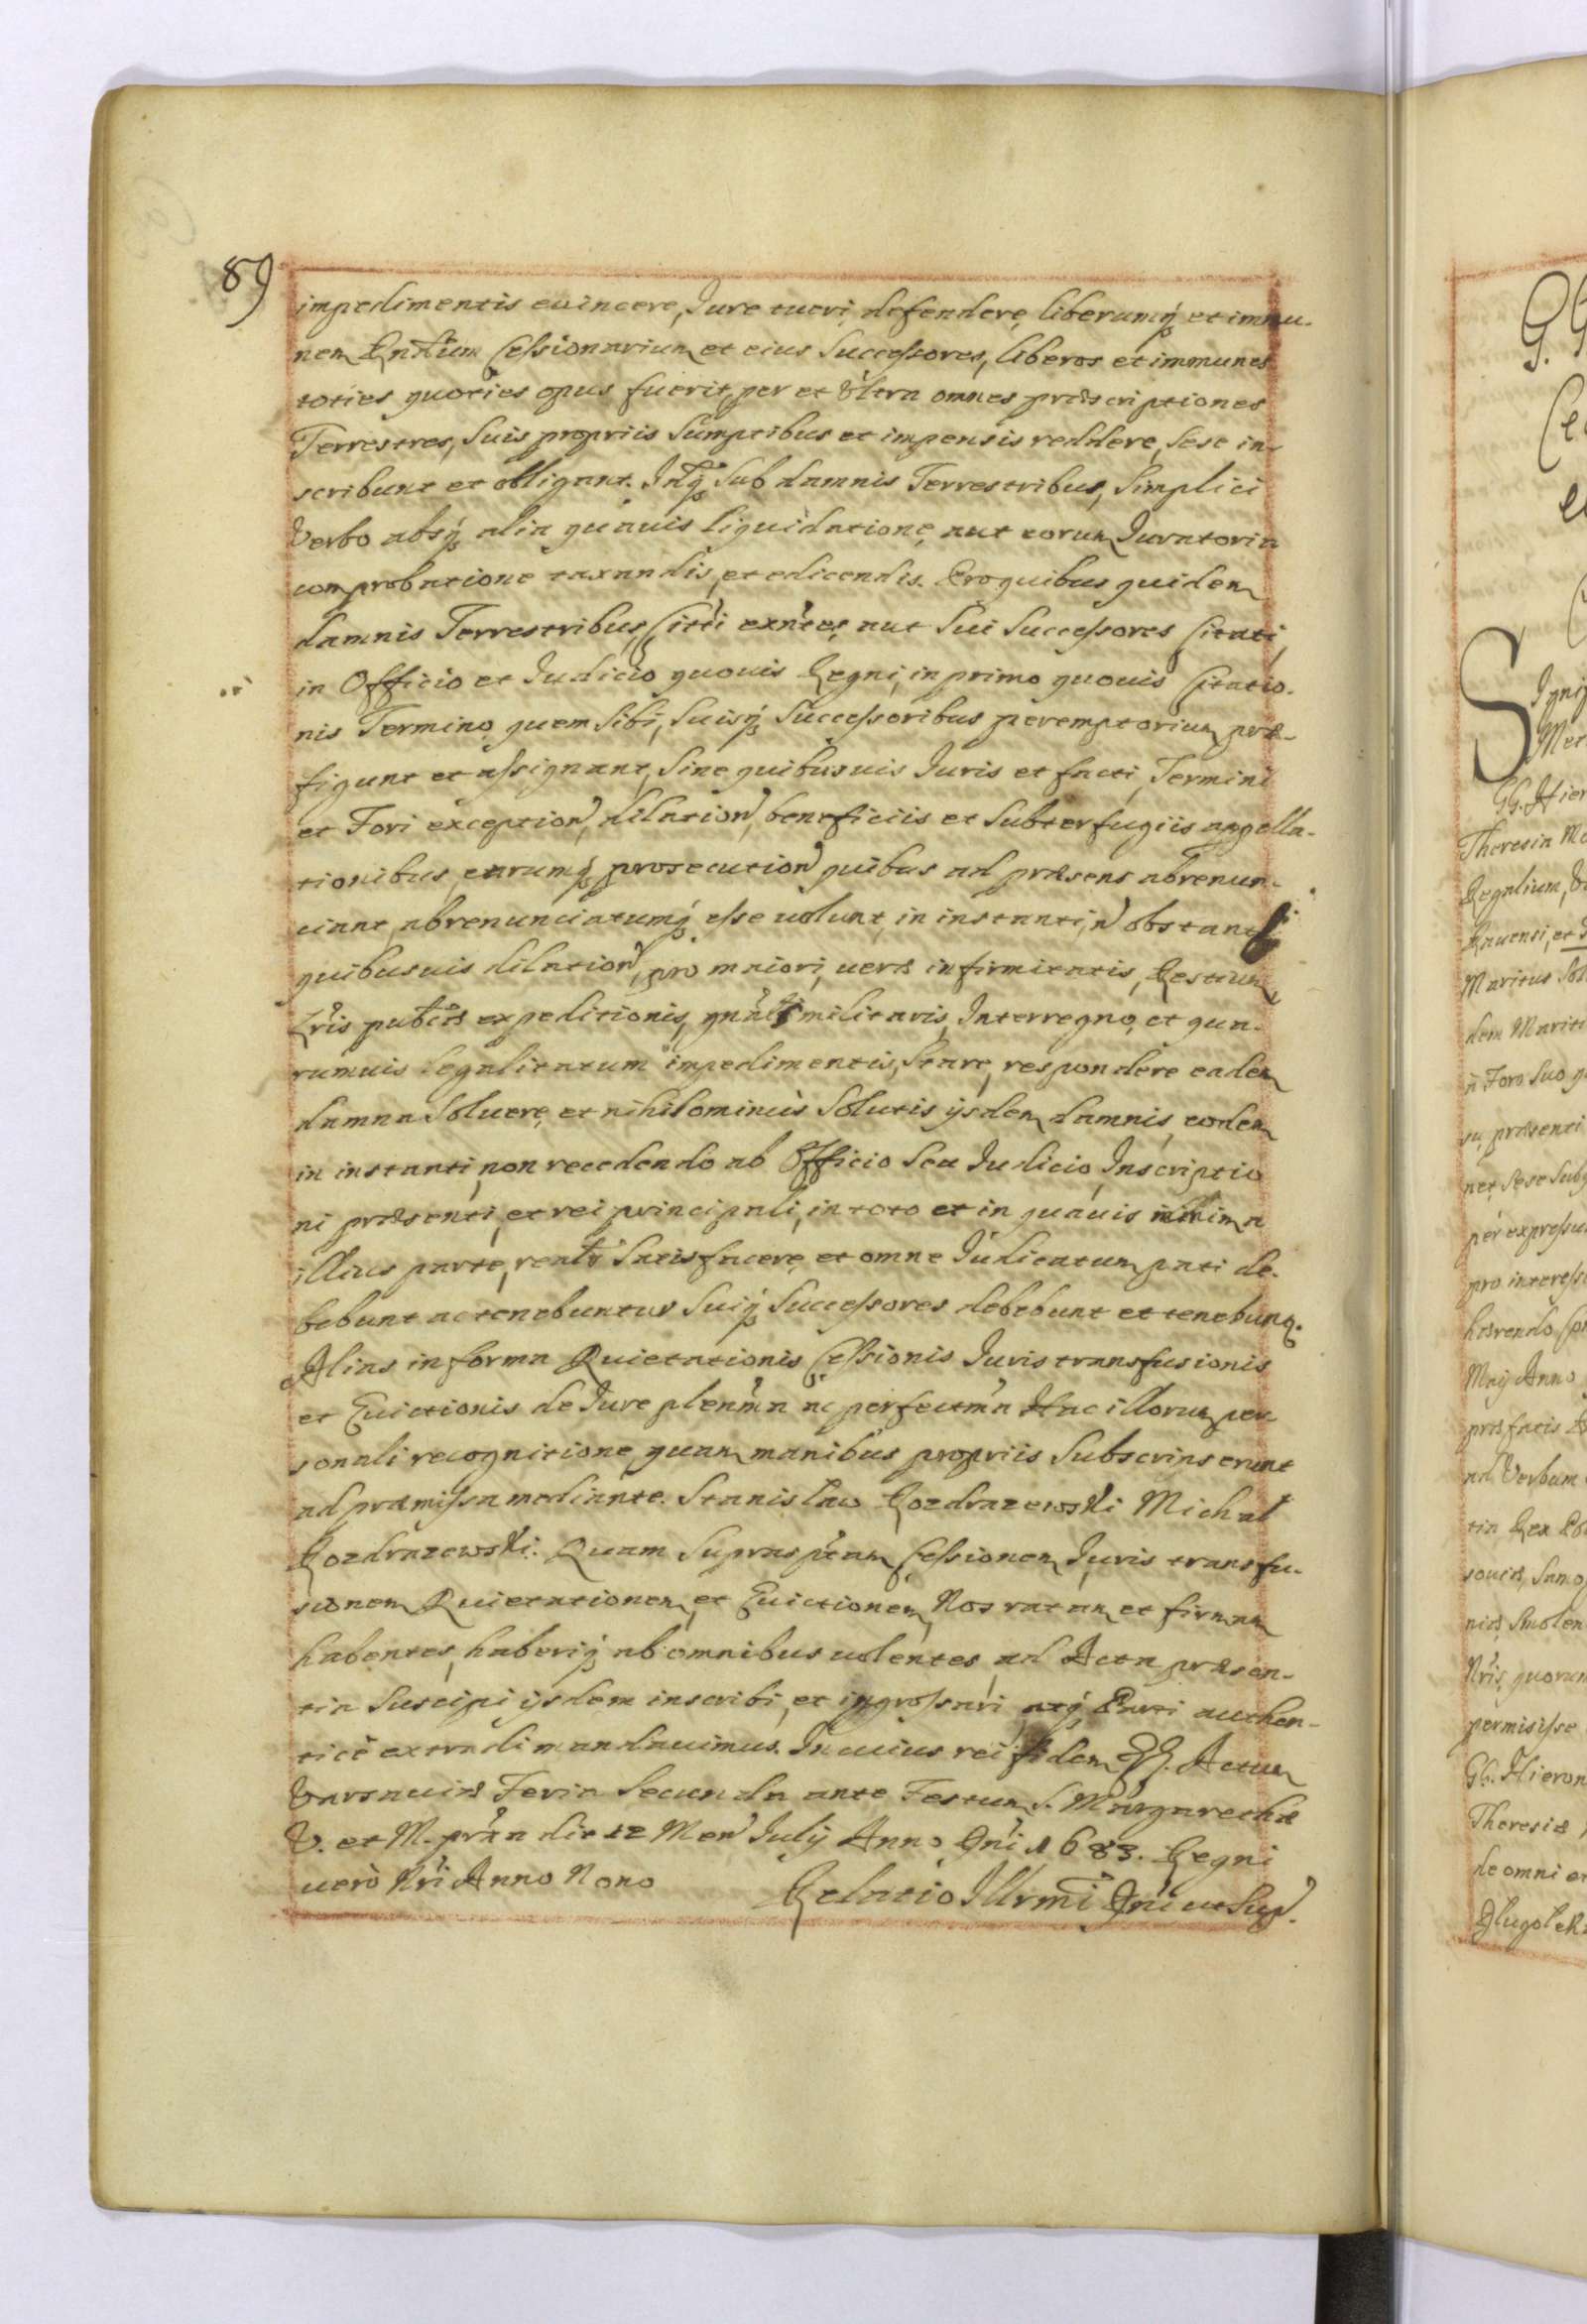 89
impedimentis euincere, Jure tueri, defendere, liberumq́ et immu-
nem Cessionarium et eius Successores, liberos et immunes
toties quoties opus fuerit, per et Vltra omnes præscriptiones
Terrestres, Suis propriis Sumptibus et impensis reddere, Sese in-
scribunt et obligant. Idq́ Sub damnis Terrestribus, Simplici
Verbo absq́ alia quauis liquidatione, aut eorum Juratoria
comprobatione taxandis, et edicendis. Pro quibus quidem
damnis Terrestribus, Citti exn̄tes aut Sui Successores Citati,
in Officio et Judicio quouis Regni, in primo quouis Citatio-
nis Termino quem Sibi, Suisq́ Successoribus peremptorium præ-
figunt et assignant, Sine quibusuis Juris et facti, Termini
et Fori exception̄, dilation̄, beneficiis et Subterfugiis appella-
tionibus, earumq́ prosecution̄ quibus ad præsens abrenun-
ciant, abrenunciatumq́ esse uolunt, in instanti, n̄ obstant
quibusuis dilation̄, pro maiori, ueræ infirmitatis, Pestium
Lrīs pub̄cæ expeditionis, militaris, Interregno, et qua-
rumuis legalitatum impedimentis, Stare, respondere eadem
damna Soluere, et nihilominùs Solutis ijsdem damnis, eodem
in instanti, non recedendo ab Officio Seu Judicio, Inscriptio
ni præsenti, et rei principali, in toto et in quauis minima
illius parte, realr̄ Satisfacere, et omne Judicatum pati de-
bebunt ac tenebuntur Suiq́ Successores debebunt et tenebunt.
Alias in forma Quietationis Cessionis Juris transfusionis
et Euictionis de Jure plenm̄a ac perfectm̄a Hac illorum per-
sonali recognitione quam manibus propriis Subscripserunt
ad præmissa mediante. Stanislaw Rozdrazewski Michal
Rozdrazewski. Quam Suprasptam Cessionem Juris transfu-
sionem Quietationem, et Euictionem, Nos ratam et firmam
habentes, haberiq́ ab omnibus uolentes, ad Acta præsen-
tia Suscipi ijsdem inscribi, et ingrossari, atq́ Parti authen-
ticè extradi mandauimus. In cuius rei fidem Actum
Varsauiæ Feria Secunda ante Festum S. Margarethæ
V. et M. prx̄a die 12 Men̄ Julij Anno Dn̄i 1683. Regni
uerò Nr̄i Anno Nono
Relatio Illrmi Dn̄i ut Sup̄.